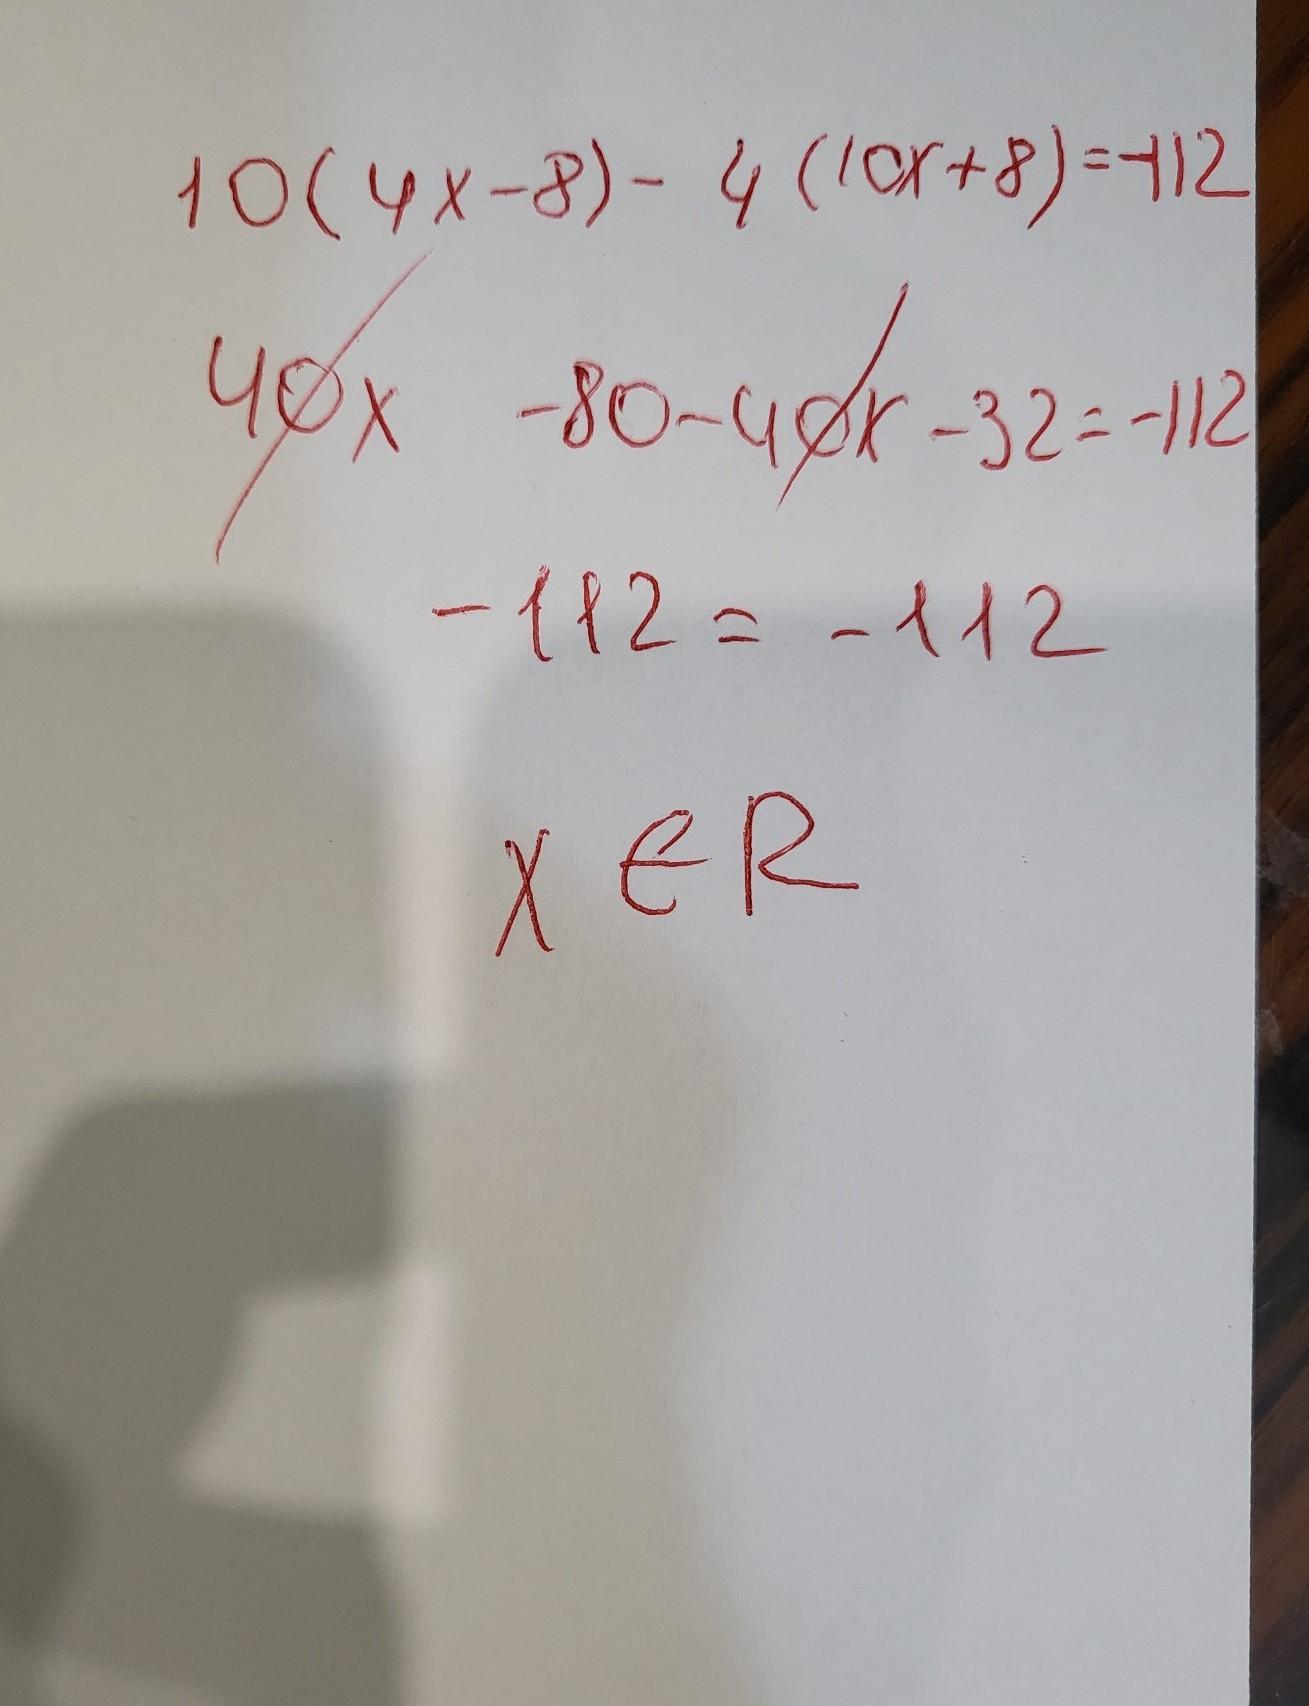 10(4x-8)- 4(10x+8)=-112
40x -80-40x-32=-112
-112 = -112
x ∈ R